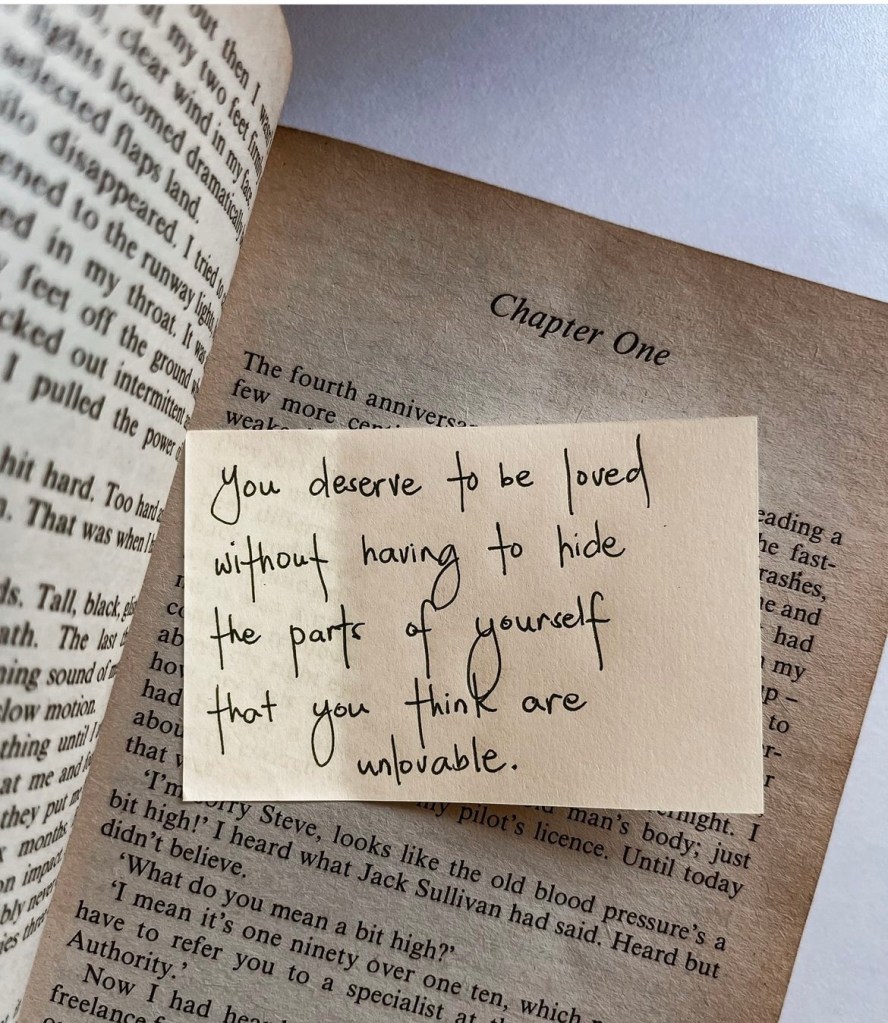 out then I was
clear wind in my face,
my two feet firmly
lights loomed dramatically
selected flaps land.
disappeared. I tried to
to the runway lights
in my throat. It was
feet off the ground
out intermittent
I pulled the power
hit hard. Too hard
That was when I
Tall, black,
The last
sound of
slow motion.
thing until I
at me and
they put
months
on impact
Chapter One
The fourth
few more
you deserve to be loved
without having to hide
the parts of yourself
that you think are
unlovable.
eading a
he fast-
rashes,
and
had
my
to
had
that
I
man's body; just
my pilot's licence. Until today
'I'm Steve, looks like the old blood pressure's a
bit high!' I heard what Jack Sullivan had said. Heard but
didn't believe.
'What do you mean a bit high?'
'I mean it's one ninety over one ten, which
have to refer you to a specialist at
Authority.'
Now I had
freelance